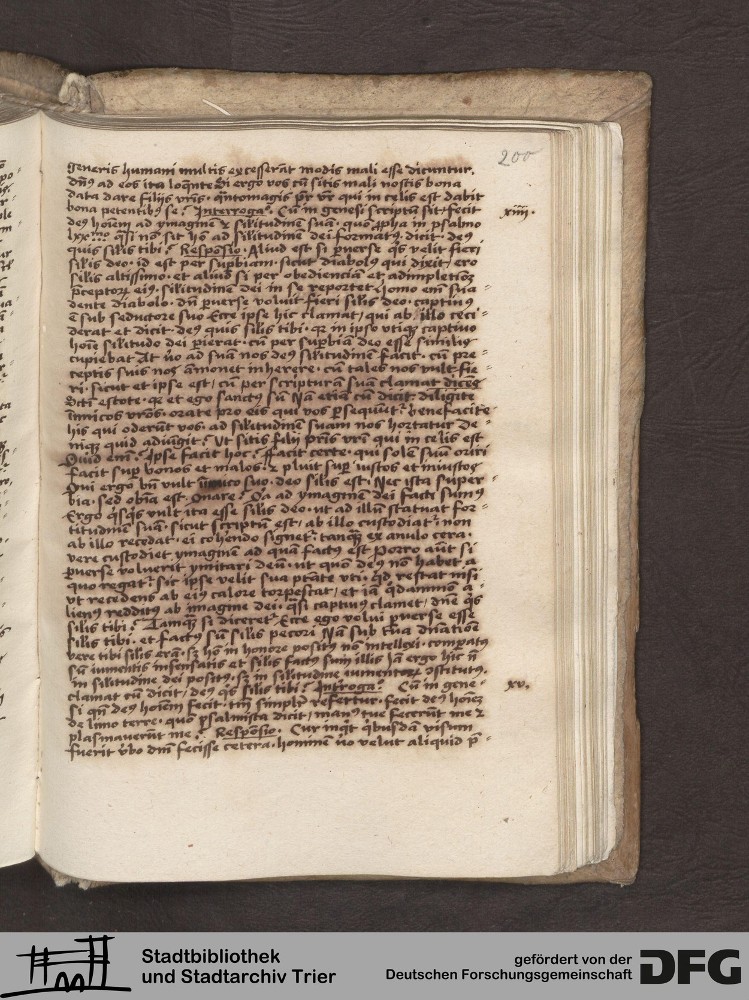 200
generis humani multis excesserāt modis mali esse dicuntur.
dn̄s ad eos ita loq̄nte Si ergo vos cū sitis mali nostis bona
data dare filijs vr̄is. q̄ntomagis pr̄ vr̄ qui in celis est dabit
bona petentibꝰ se? Interroga? Cū in genesi scriptū sit, fecit
xiiij.
deꝰ hoīem ad ymaginē ⁊ silitudinē suā. quō ꝓpha in psalmo
q̄si nō sit hō ad silitudinē dei formatꝰ. dicit. deꝰ
quis silis tibi? Respōsio. Aliud est si ꝑuerse q̄s velit fieri
silis deo. id est per supbiam. sicut diabolꝰ qui dixit, ero
silis altissimo. et aliud si per obedienciā et adimpletioꝫ
p̄ceptoꝝ eiꝰ. silitudinē dei in se reportet, homo em̄ sua-
dente diabolo. dū ꝑuerse voluit fieri silis deo. captiuꝰ
ē sub seductore suo Ecce ipse hic clamat, qui ab illo ceci-
derat et dicit. deꝰ quis silis tibi. qꝛ in ipso vtiqꝫ captiuo
hoīe silitudo dei perierat. cū per supbiā deo esse similis
cupiebat At ūo ad suā nos deꝰ silitudinē facit. cū pre-
ceptis suis nos āmonet inherere. cū tales nos vult fie-
ri. sicut et ipse est, cū per scripturā suā clamat dicēs
Scti estote. qꝛ et ego sanctꝰ sū Nā etiā cū dicit. diligite
inimicos vr̄os. orate pro eis qui vos ꝑsequūt? benefacite
his qui oderūt vos. ad silitudinē suam nos hortatur De-
niqꝫ quid adiūgit? Vt sitis filij pr̄is vr̄i qui in celis est
Quid em̄? Ipse facit hoc? Facit certe. qui solē suū oriri
facit sup̄ bonos et malos. ⁊ pluit sup̄ iustos et iniustos
Qui ergo bn̄ vult inimico suo. deo silis est. Nec ista super-
bia. sed obīa est. Quare? Qa ad ymaginē dei facti sumꝰ
Ergo q̄sq̄s vult ita esse silis deo. vt ad illū statuat for-
titudinē suā. sicut scriptū est, ab illo custodiat? non
ab illo recedat. ei cohēndo signet? tanqꝫ ex anulo cera.
vere custodiet ymaginē ad quā factꝰ est Porro aūt si
ꝑuerse voluerit ymitari deū. vt quō deꝰ nō habet a
quo regat? sic ipse velit sua ptāte vti. q̄d restat nisi
vt recedens ab eiꝰ calore torpestat, et iā q̄dammō a-
lienꝰ redditꝰ ab imagine dei. q̄si captiuꝰ clamet, dn̄e q̄s
silis tibi? Tamqꝫ si diceret. Ecce ego volui ꝑuerse esse
silis tibi. et factꝰ sū silis pecori Nā sub tua dn̄atiōe
vere tibi silis erā. sꝫ hō in honore positꝰ nō intellexi. compatꝰ
sū iumentis insensatis et silis factꝰ sum illis Iā ergo hic nō
in silitudine dei positꝰ. sꝫ in silitudine iumentoꝝ ꝯstitutꝰ.
clamat cū dicit, deꝰ q̄s silis tibi? Introga? Cū in gene-
xv.
si qn̄ deꝰ hoīem fecit. tm̄ simplr̄ refertur. fecit deꝰ hoīeꝫ
de limo terre. quō psalmista dicit, manꝰ tue fecerūt me ⁊
plasmauerūt me? Respōsio. Cur inqt q̄busdā visum
fuerit v̄bo dm̄ fecisse cetera. hominē ūo velut aliquid p̄-
Stadtbibliothek
und Stadtarchiv Trier
gefördert von der
Deutschen Forschungsgemeinschaft
DFG